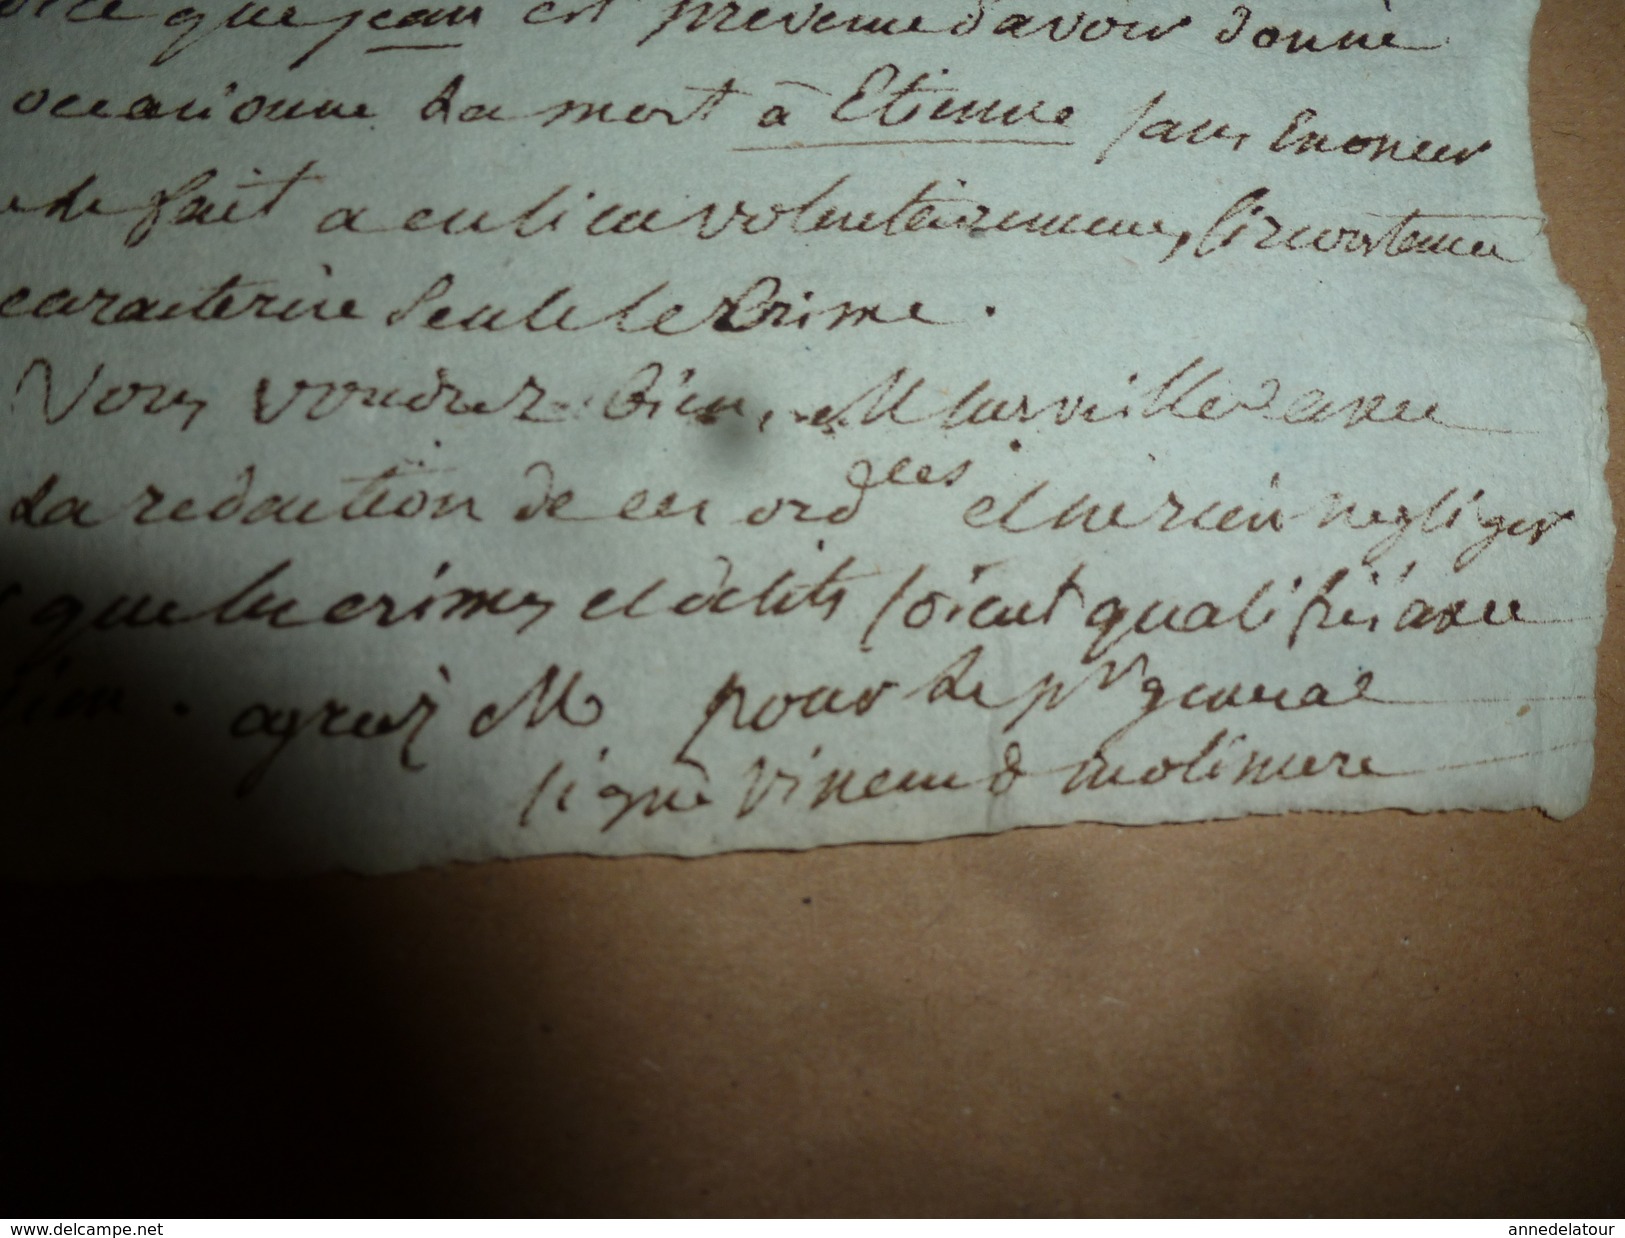 que jean est prevenu d'avoir donné
occasionné la mort a Etienne sans Enoncer
le fait a eu lieu volontairement, Circonstance
caracterise seule le Crime.
Vous voudrez bien, M surveiller avec
La redaction de ces ord ces et ne rien negliger
que les crimes et délits soient qualifiés avec
agreéz M pour le pr general
signé vincend molinier
delcampe.net
annedelatour